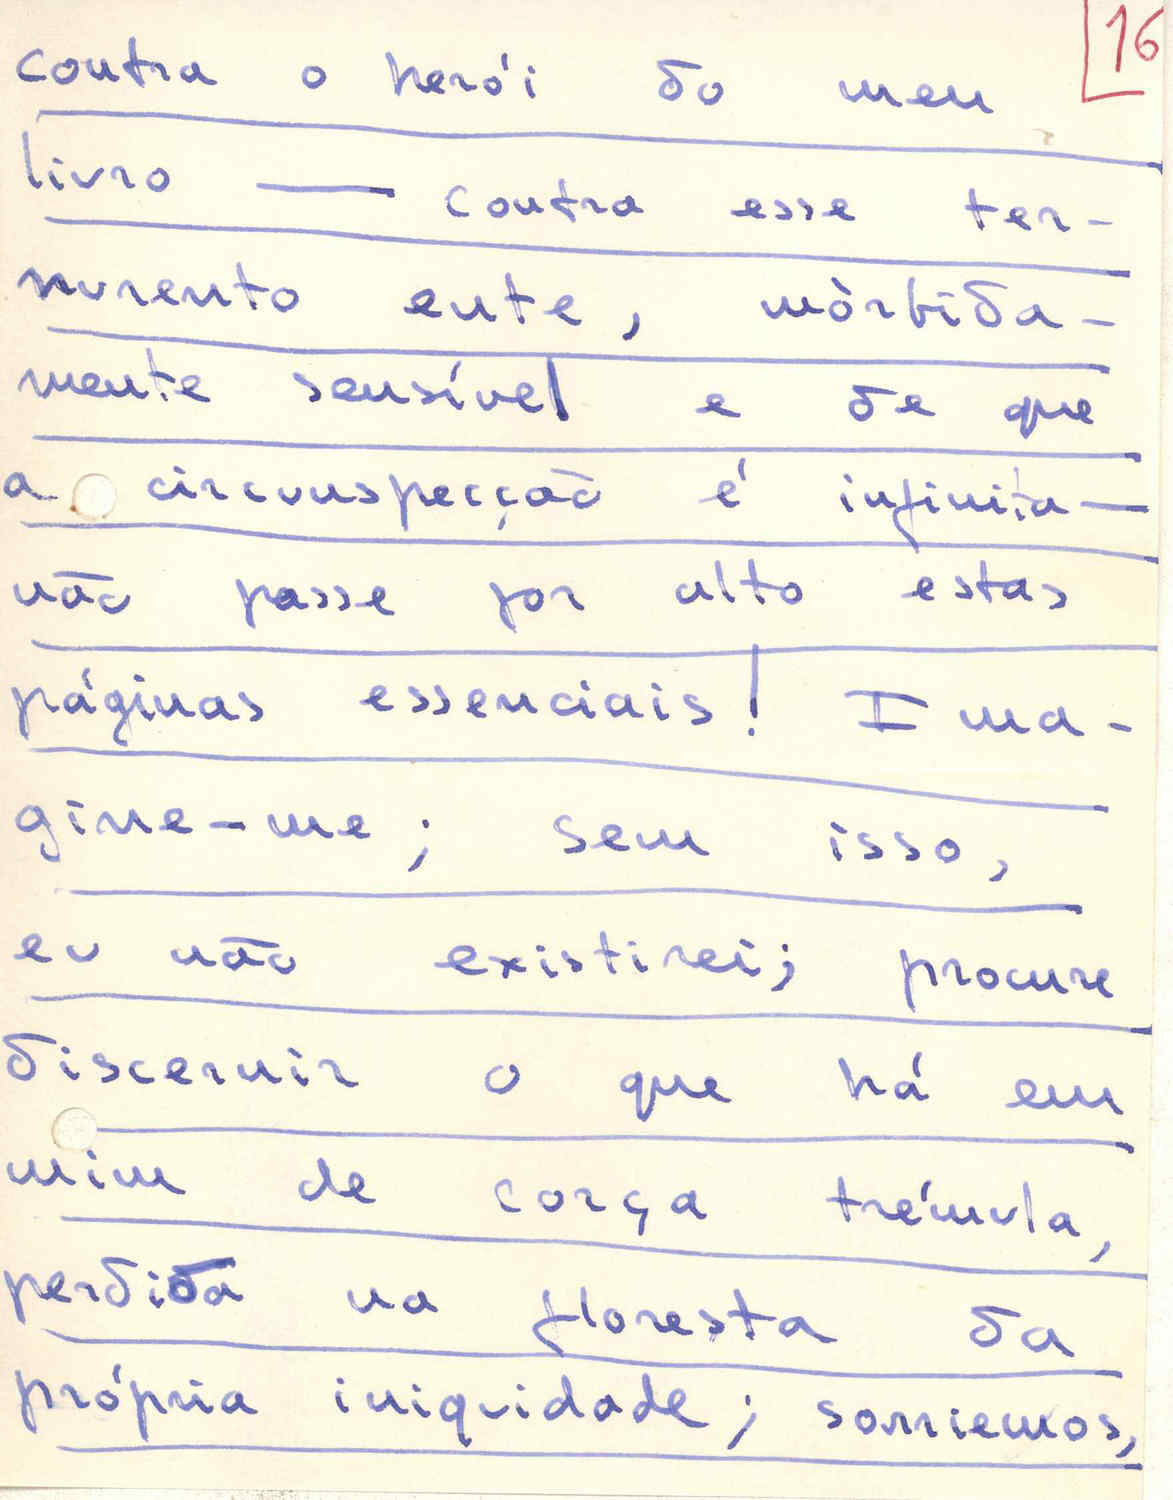 16
contra o herói do meu
livro — contra esse ter-
nurento ente, mòrbida-
mente sensível e de que
a circunspecção é infinita —
não passe por alto estas
páginas essenciais! Ima-
gine-me; sem isso,
eu não existirei; procure
discernir o que há em
mim de corça trémula,
perdida na floresta da
própria iniquidade; sorriemos,